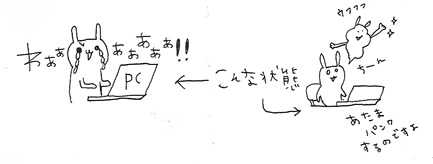 わぁぁぁ
ぁぁぁぁぁ!!
PC
こんな状態
ウフフフ
ちーん
あたま
パンク
するのですよ